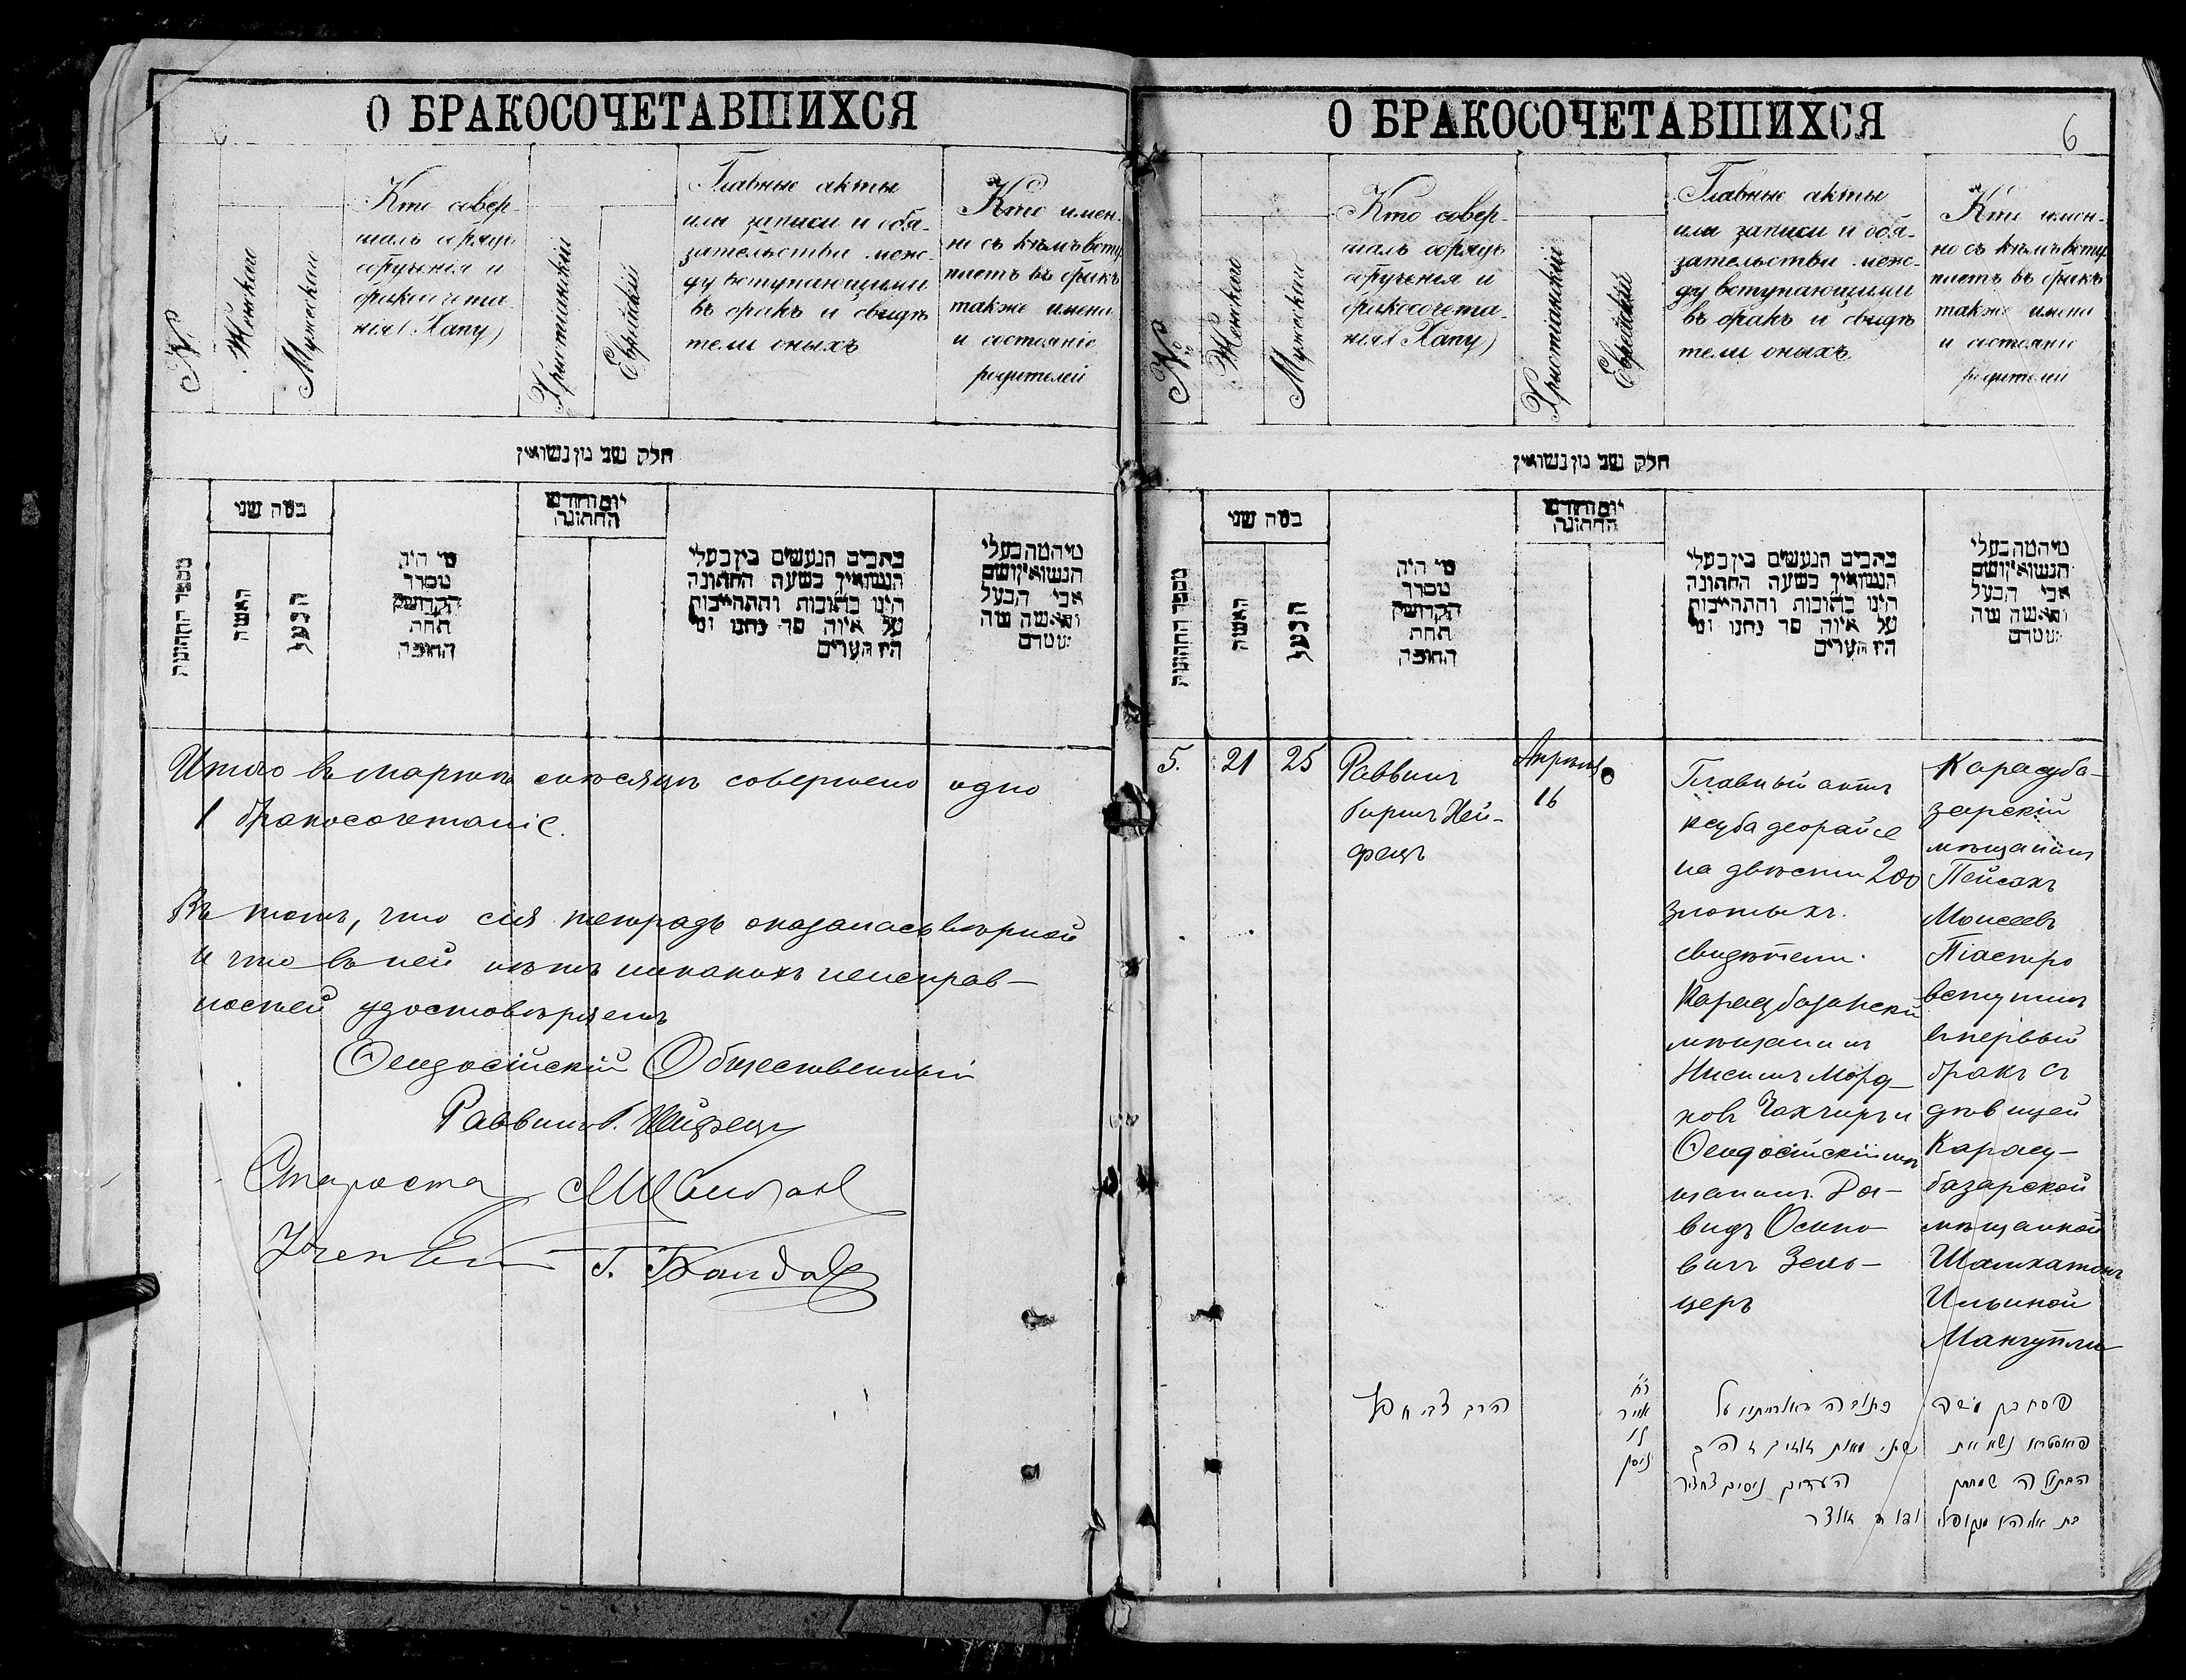 О БРАКОСОЧЕТАВШИХСЯ
№
Женскаго
Мужескаго
Кто совер-
шалъ обрядъ
обрученія и
бракосочета
нія (Хапу)
Христіанскій
Еврейскій
Главные акты
или записи и обя-
зательства меж-
ду вступающими
въ бракъ и свидѣ
тели оныхъ
Кто имен-
но съ кѣмъ всту
паетъ въ бракъ
также имена
и состояніе
родителей
חלק שני מן נשואין
מספר החתונות
כמה שני
האשה
הבעל
מי היה
מסדר
הקדושין
תחת
החופה
יום וחודש
החתונה
כתבים הנעשים בין בעלי
הנשואין בשעה החתונה
היינו כתובות והתחייבות
על איזה סך נתנו ומי
היו העדים
מי המה בעלי
הנשואין ושם
אבי הבעל
והאשה ומה
מעמדם
Итого въ мартѣ мѣсяцѣ совершено одно
1 бракосочетаніе.
Въ томъ, что сія тетрадь оказалась вѣрной
и что въ ней нѣтъ никакихъ неисправ-
ностей удостовѣряетъ
Ѳеодосійскій Общественный
Раввинъ Б. Хейфецъ
Староста
О БРАКОСОЧЕТАВШИХСЯ
6
№
Женскаго
Мужескаго
Кто совер-
шалъ обрядъ
обрученія и
бракосочета
нія (Хапу)
Христіанскій
Еврейскій
Главные акты
или записи и обя-
зательства меж-
ду вступающими
въ бракъ и свидѣ
тели оныхъ
Кто имен-
но съ кѣмъ всту
паетъ въ бракъ
также имена
и состояніе
родителей
חלק שני מן נשואין
מספר החתונות
כמה שני
האשה
הבעל
מי היה
מסדר
הקדושין
תחת
החופה
יום וחודש
החתונה
כתבים הנעשים בין בעלי
הנשואין בשעה החתונה
היינו כתובות והתחייבות
על איזה סך נתנו ומי
היו העדים
מי המה בעלי
הנשואין ושם
אבי הבעל
והאשה ומה
מעמדם
5.
21
25
Раввинъ
Биришъ Хей-
фецъ
Апрѣля
16
Главный актъ
ксуба деорайсе
на двѣсти 200
злотыхъ.
свидѣтели.
Карасубазарскій
мѣщанинъ
Нисимъ Морд-
ковъ Чахчиръ и
Ѳеодосійскій мѣ
щанинъ Да-
видъ Осипо-
вичъ Зель-
церъ
Карасуба-
зарскій
мѣщанинъ
Пейсахъ
Моисеевъ
Піастро
вступилъ
въ первый
бракъ съ
дѣвицей
Карасу-
базарской
мѣщанкой
Шамхатонъ
Ильиной
Мангупли
הרב צבי חפץ
אייר
ניסן
כתובה דאורייתא על
שתי מאות
העדים ניסים
פסח בן משה
פיאסטרא נשא את
הבתולה
בת אליהו מנגופלי